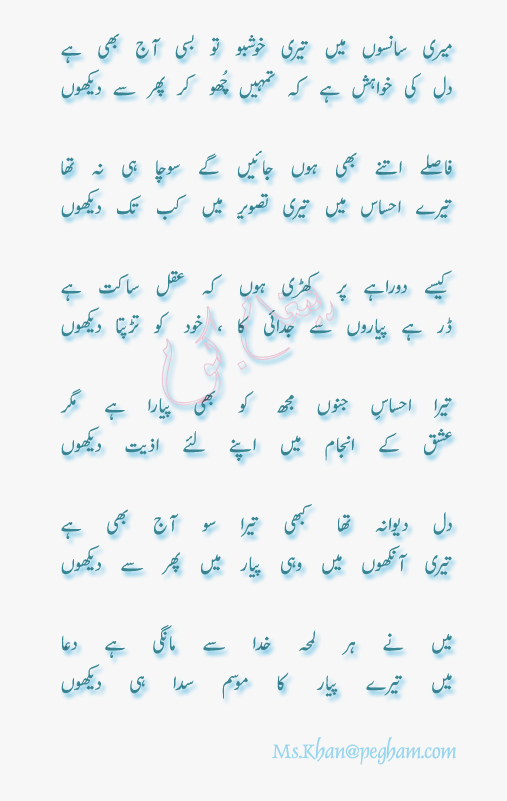 میری سانسوں میں تیری خوشبو تو بسی آج بھی ہے
دل کی خواہش ہے کہ تمہیں چُھو کر پھر سے دیکھوں
فاصلے اتنے بھی ہوں جائیں گے سوچا ہی نہ تھا
تیرے احساس میں تیری تصویر میں کب تک دیکھوں
کیسے دوراہے پر کھڑی ہوں کہ عقل ساکت ہے
ڈر ہے پیاروں سے جدائی کا ، خود کو تڑپتا دیکھوں
پیغام گو
تیرا احساسِ جنوں مجھ کو بھی پیارا ہے مگر
عشق کے انجام میں اپنے لئے اذیت دیکھوں
دل دیوانہ تھا کبھی تیرا سو آج بھی ہے
تیری آنکھوں میں وہی پیار میں پھر سے دیکھوں
میں نے ہر لمحہ خدا سے مانگی ہے دعا
میں تیرے پیار کا موسم سدا ہی دیکھوں
Ms.Khan@pegham.com